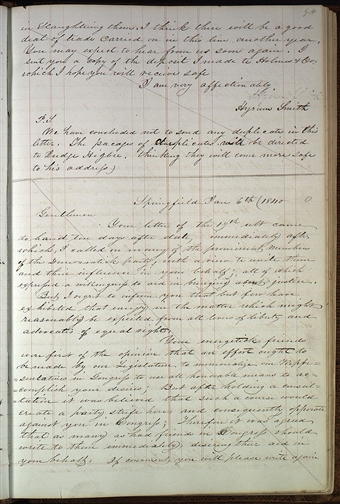 in slaughtering them, I think there will be a good
deal of trade carried on in this line another year.
You may expect to hear from us soon again. I
sent you a copy of the deposit I made to Holmes & Co,
which I hope you will receive safe
I am very affectionately
Hyrum Smith
P.S.
We have concluded not to send any duplicates in this
letter. The pacages of duplicates will be directed
to Judge Higbee, (thinking they will come more safe
to his address)
Springfield Jan 6th 1840
Gentlemen
Your letter of the 19th ult came
to hand ten days after date, immediately after
which, I called in many of the prominent members
of the Democratic party, with a view to unite them
and their influence in your behalf; all of which
expressed a willingness to aid in
But, I regret to inform you that but few have
exhibited that energy in the matter which might
reasonably be expected from all lovers of liberty and
advocates of equal rights.
Your energetick friends
were first of the opinion that an effort ought to
be made by our Legislature to memorialize our Repre-
sentatives in Congress to use all honorable means to ac-
complish your desire; but after holding a consul-
tation it was believed that such a course would
create a party strife here and consequently operate
against you in Congress; Therefore it was agreed
that as many as had friends in Congress should
write to them immediately, desiring their aid in
your behalf. If convenient, you will please write again